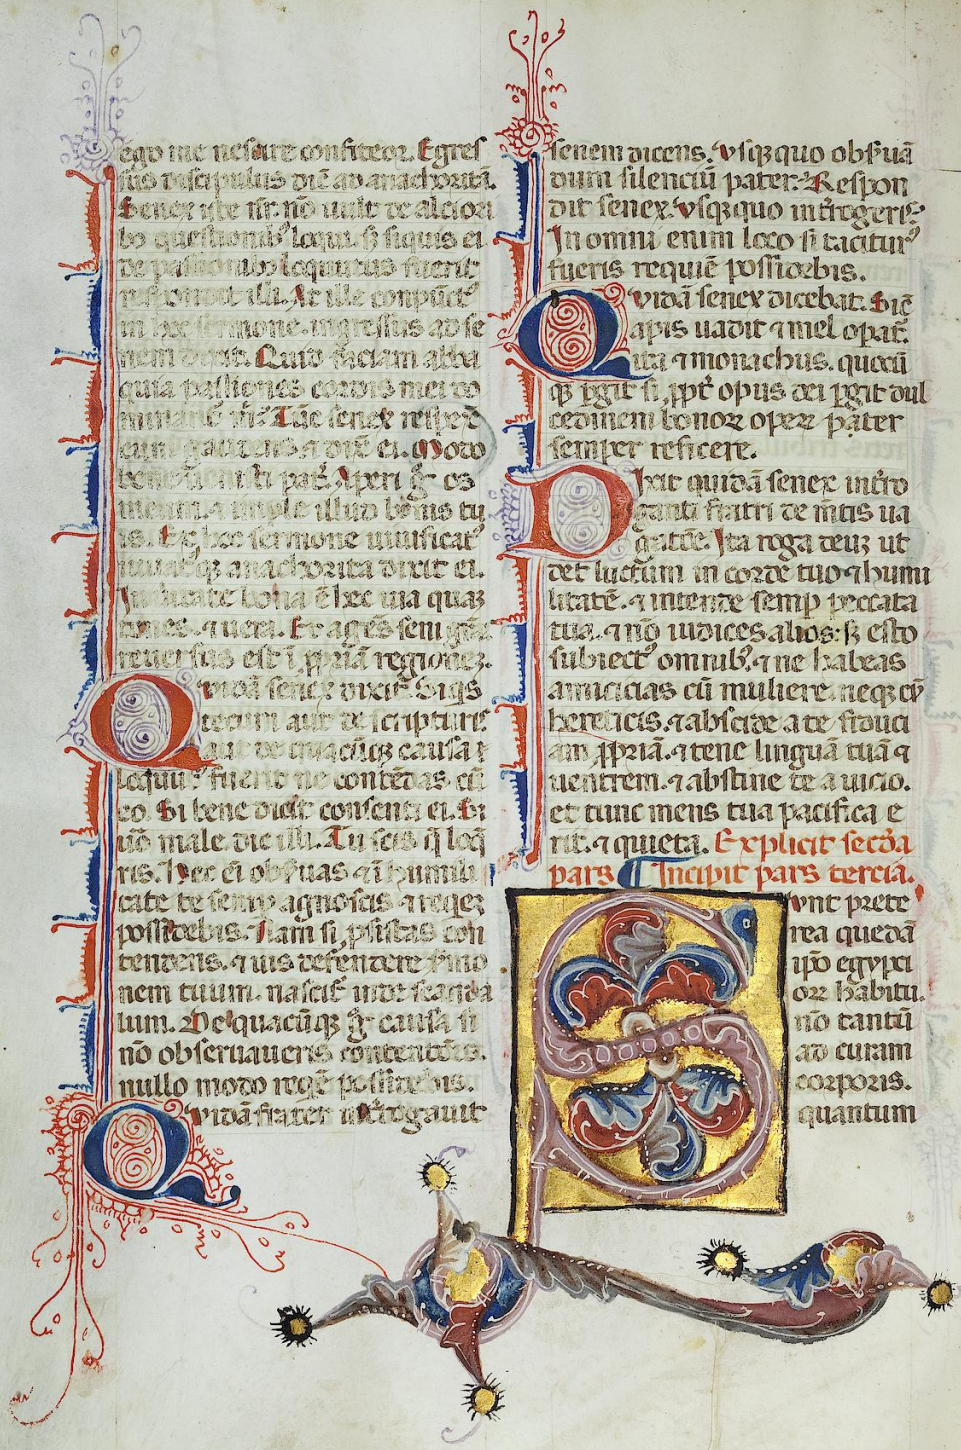 ego me nescire confiteor. Egres
sus discipulus dix̄ ad anachoritā.
Senex iste nr̄. nō uult de altiori
bꝰ questionibꝰ loqui. sꝫ siquis ei
de passionibꝫ loquutus fuerit
respondit illi. At ille conpūctꝰ
in hoc sermone. ingressus ad se
nem dixit. Quid faciam abba
quia passiones cordis mei do
minant᷑ m̄. Tūc senex respex̄
eum gaudens ⁊ dix̄ ei. Modo
bene uenisti pat᷑. Aperi gͦ os
meum. ⁊ imple illud bonis tu
is. Ex hoc sermone uiuificat᷑
anachorita dixit ei.
bona ē hec uia quaꝫ
tenes. ⁊ uera. Et agēs seni
reuersus est ī ꝓpriā regioneꝫ.
Quidā senex dixit. Siqͥs
tecum aut de scripturis
aut de quacūqꝫ causa
loquut᷑ fuerit ne contēdas cū
eo. Si bene dicit consenti ei. Si
uō male. dic illi. Tu scis qͦ loq̄
ris. Hec eī obẜuas ⁊ ī humili
tate te semꝑ agnoscis ⁊ reqͥeꝫ
possidebis. Nam si ꝑsistas con
tendens. ⁊ uis defendere ẜmo
nem tuum. nascit᷑ inde scanda
lum. De quacūqꝫ gͦ causa si
nō obseruaueris contentōis.
nullo modo reqͥē possidebis.
Quidā frater int̄rogauit
senem dicens. Vsqꝫquo obẜuā
dum silenciū pater. Respon
dit senex. Vsqꝫquo int̄rogeris.
In omni enim loco si taciturꝰ
fueris requiē possidebis.
Quidā senex dicebat. Sic̄
apis uadit ⁊ mel opat᷑.
ita ⁊ monachus. quocū
qꝫ ꝑgit si ꝓpt̄ opus dei ꝑgit dul
cedinem bonoꝝ opeꝝ pater
semper reficere.
Dixit quidā senex int̄ro
ganti fratri de m̄tis ua
gatōe. Ita roga deuꝫ ut
det luctum in corde tuo ⁊ humi
litatē. ⁊ intende semꝑ peccata
tua. ⁊ nō iudices alios: sꝫ esto
subiectꝰ omnibꝫ. ⁊ ne habeas
amicicias cū muliere. neqꝫ cū
hereticis. ⁊ abscide a te fiduci
am ꝓpriā. ⁊ tene linguā tuā ⁊
uentrem. ⁊ abstine te a uicio.
et tunc mens tua pacifica e
rit. ⁊ quieta. Explicit sec̄da
pars ¶ Incipit pars tercia.
Svnt prete
rea quedā
ip̄o egypci
oꝝ habitu.
nō tantū
ad curam
corporis.
quantum